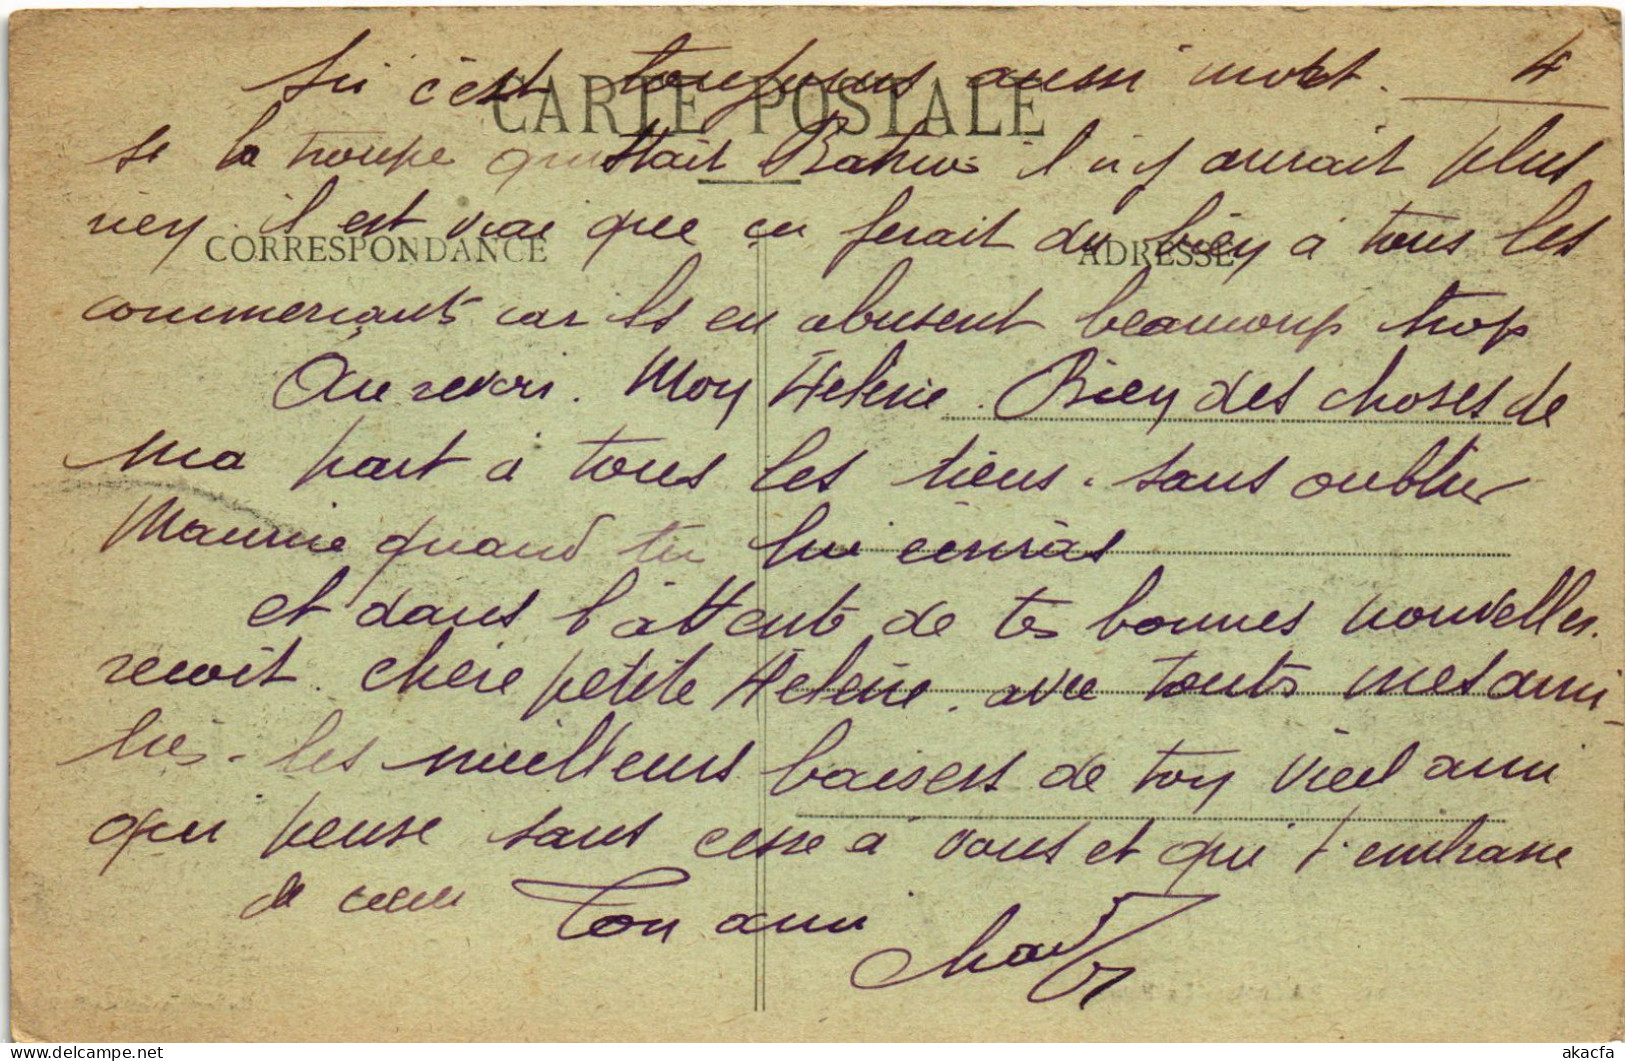 CARTE POSTALE
CORRESPONDANCE
ADRESSE
4
Ici c'est toujours aussi mort.
si la troupe quittait il n'y aurait plus
rien il est vrai que ça ferait du bien à tous les
commerçants car ils en abusent beaucoup trop
Au revoir. Mon Helene. Bien des choses de
ma part à tous les tiens. sans oublier
Maurice quand tu lui écriras
et dans l'attente de tes bonnes nouvelles.
recoit. chère petite Hélène. avec touts mes ami-
tiés. les meilleurs baisers de ton vieil ami
qui pense sans cesse à vous et qui t'embrasse
de cœur Ton ami
akacfa